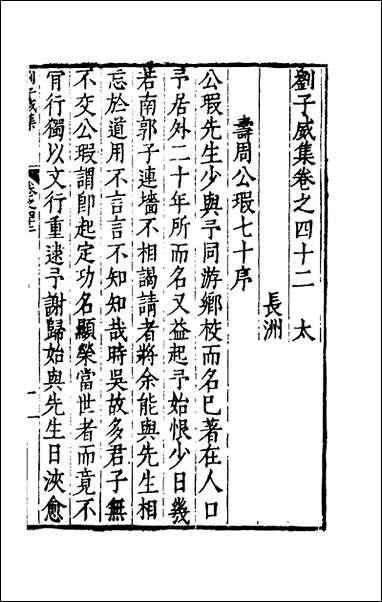 劉子威集卷之四十二　太
長洲
壽周公瑕七十序
公瑕先生少與予同游鄉校而名已著在人口
予居外二十年所而名又益起予始恨少日幾
若南郭子連墻不相謁請者將余能與先生相
忘於道用不言言不知知哉時吳故多君子無
不交公瑕謂卽起定功名顯榮當世者而竟不
肎行獨以文行重逮予謝歸始與先生日浹愈
劉子威集
卷之四十二
一